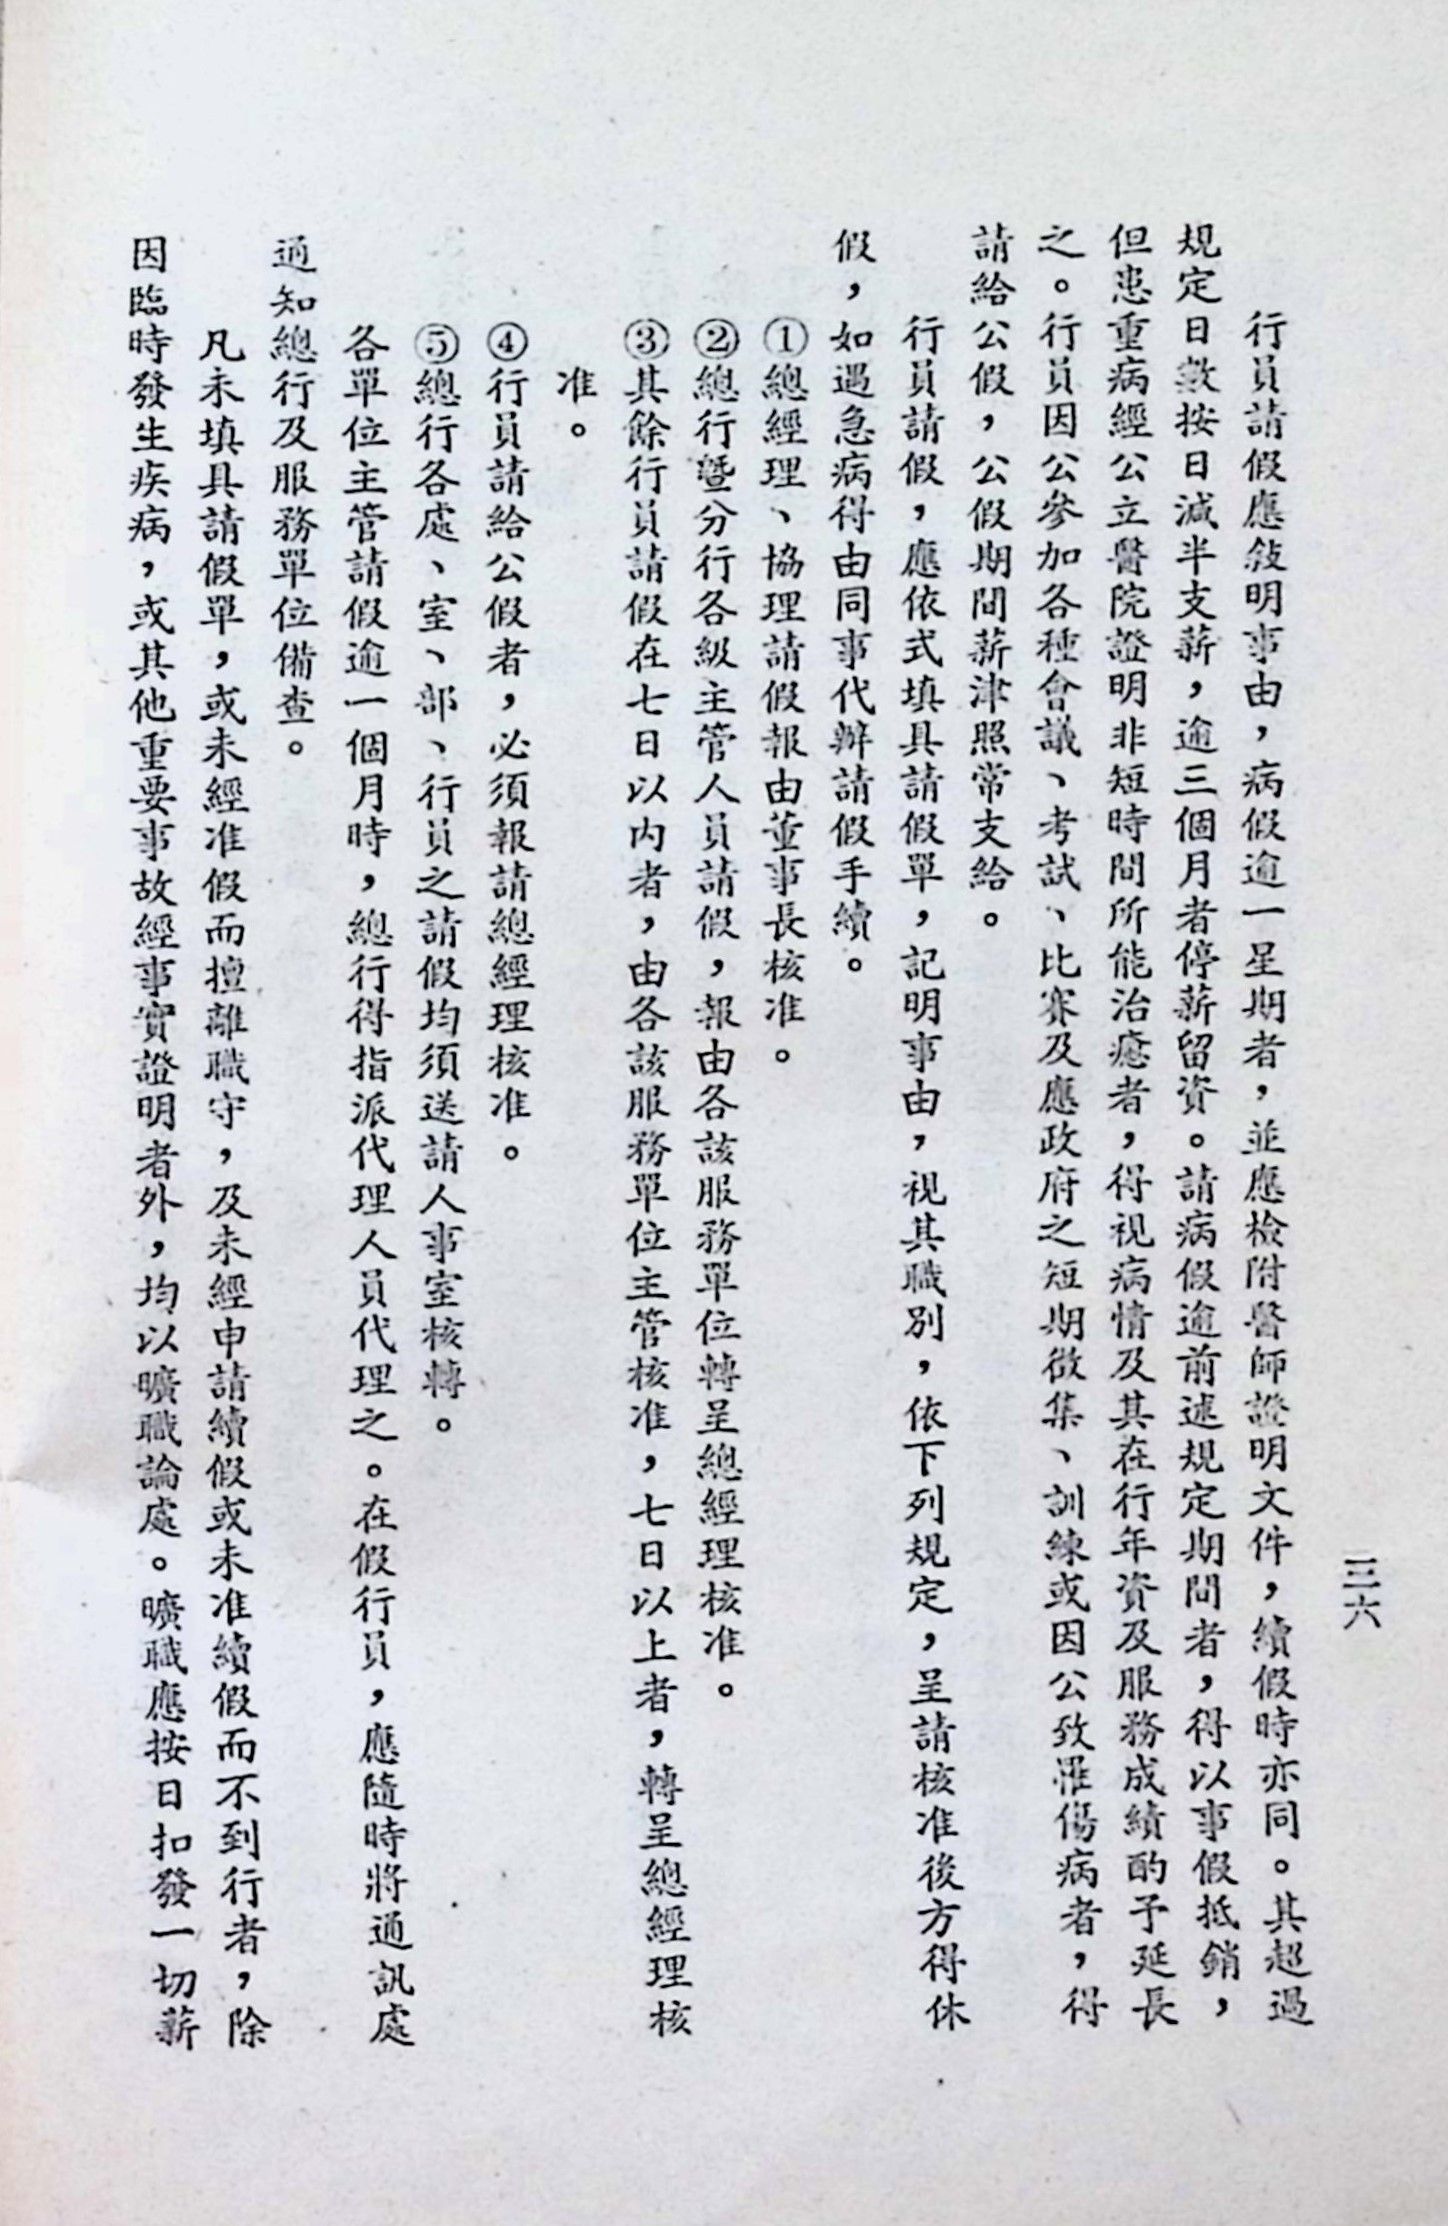 三六
行員請假應敍明事由，病假逾一星期者，並應檢附醫師證明文件，續假時亦同。其超過
規定日數按日減半支薪，逾三個月者停薪留資。請病假逾前述規定期間者，得以事假抵銷，
但患重病經公立醫院證明非短時間所能治癒者，得視病情及其在行年資及服務成績酌予延長
之。行員因公參加各種會議、考試、比賽及應政府之短期徵集、訓練或因公致罹傷病者，得
請給公假，公假期間薪津照常支給。
行員請假，應依式填具請假單，記明事由，視其職別，依下列規定，呈請核准後方得休
假，如遇急病得由同事代辦請假手續。
①總經理、協理請假報由董事長核准。
②總行暨分行各級主管人員請假，報由各該服務單位轉呈總經理核准。
③其餘行員請假在七日以內者，由各該服務單位主管核准，七日以上者，轉呈總經理核
准。
④行員請給公假者，必須報請總經理核准。
⑤總行各處、室、部、行員之請假均須送請人事室核轉。
各單位主管請假逾一個月時，總行得指派代理人員代理之。在假行員，應隨時將通訊處
通知總行及服務單位備查。
凡未填具請假單，或未經准假而擅離職守，及未經申請續假或未准續假而不到行者，除
因臨時發生疾病，或其他重要事故經事實證明者外，均以曠職論處。曠職應按日扣發一切薪